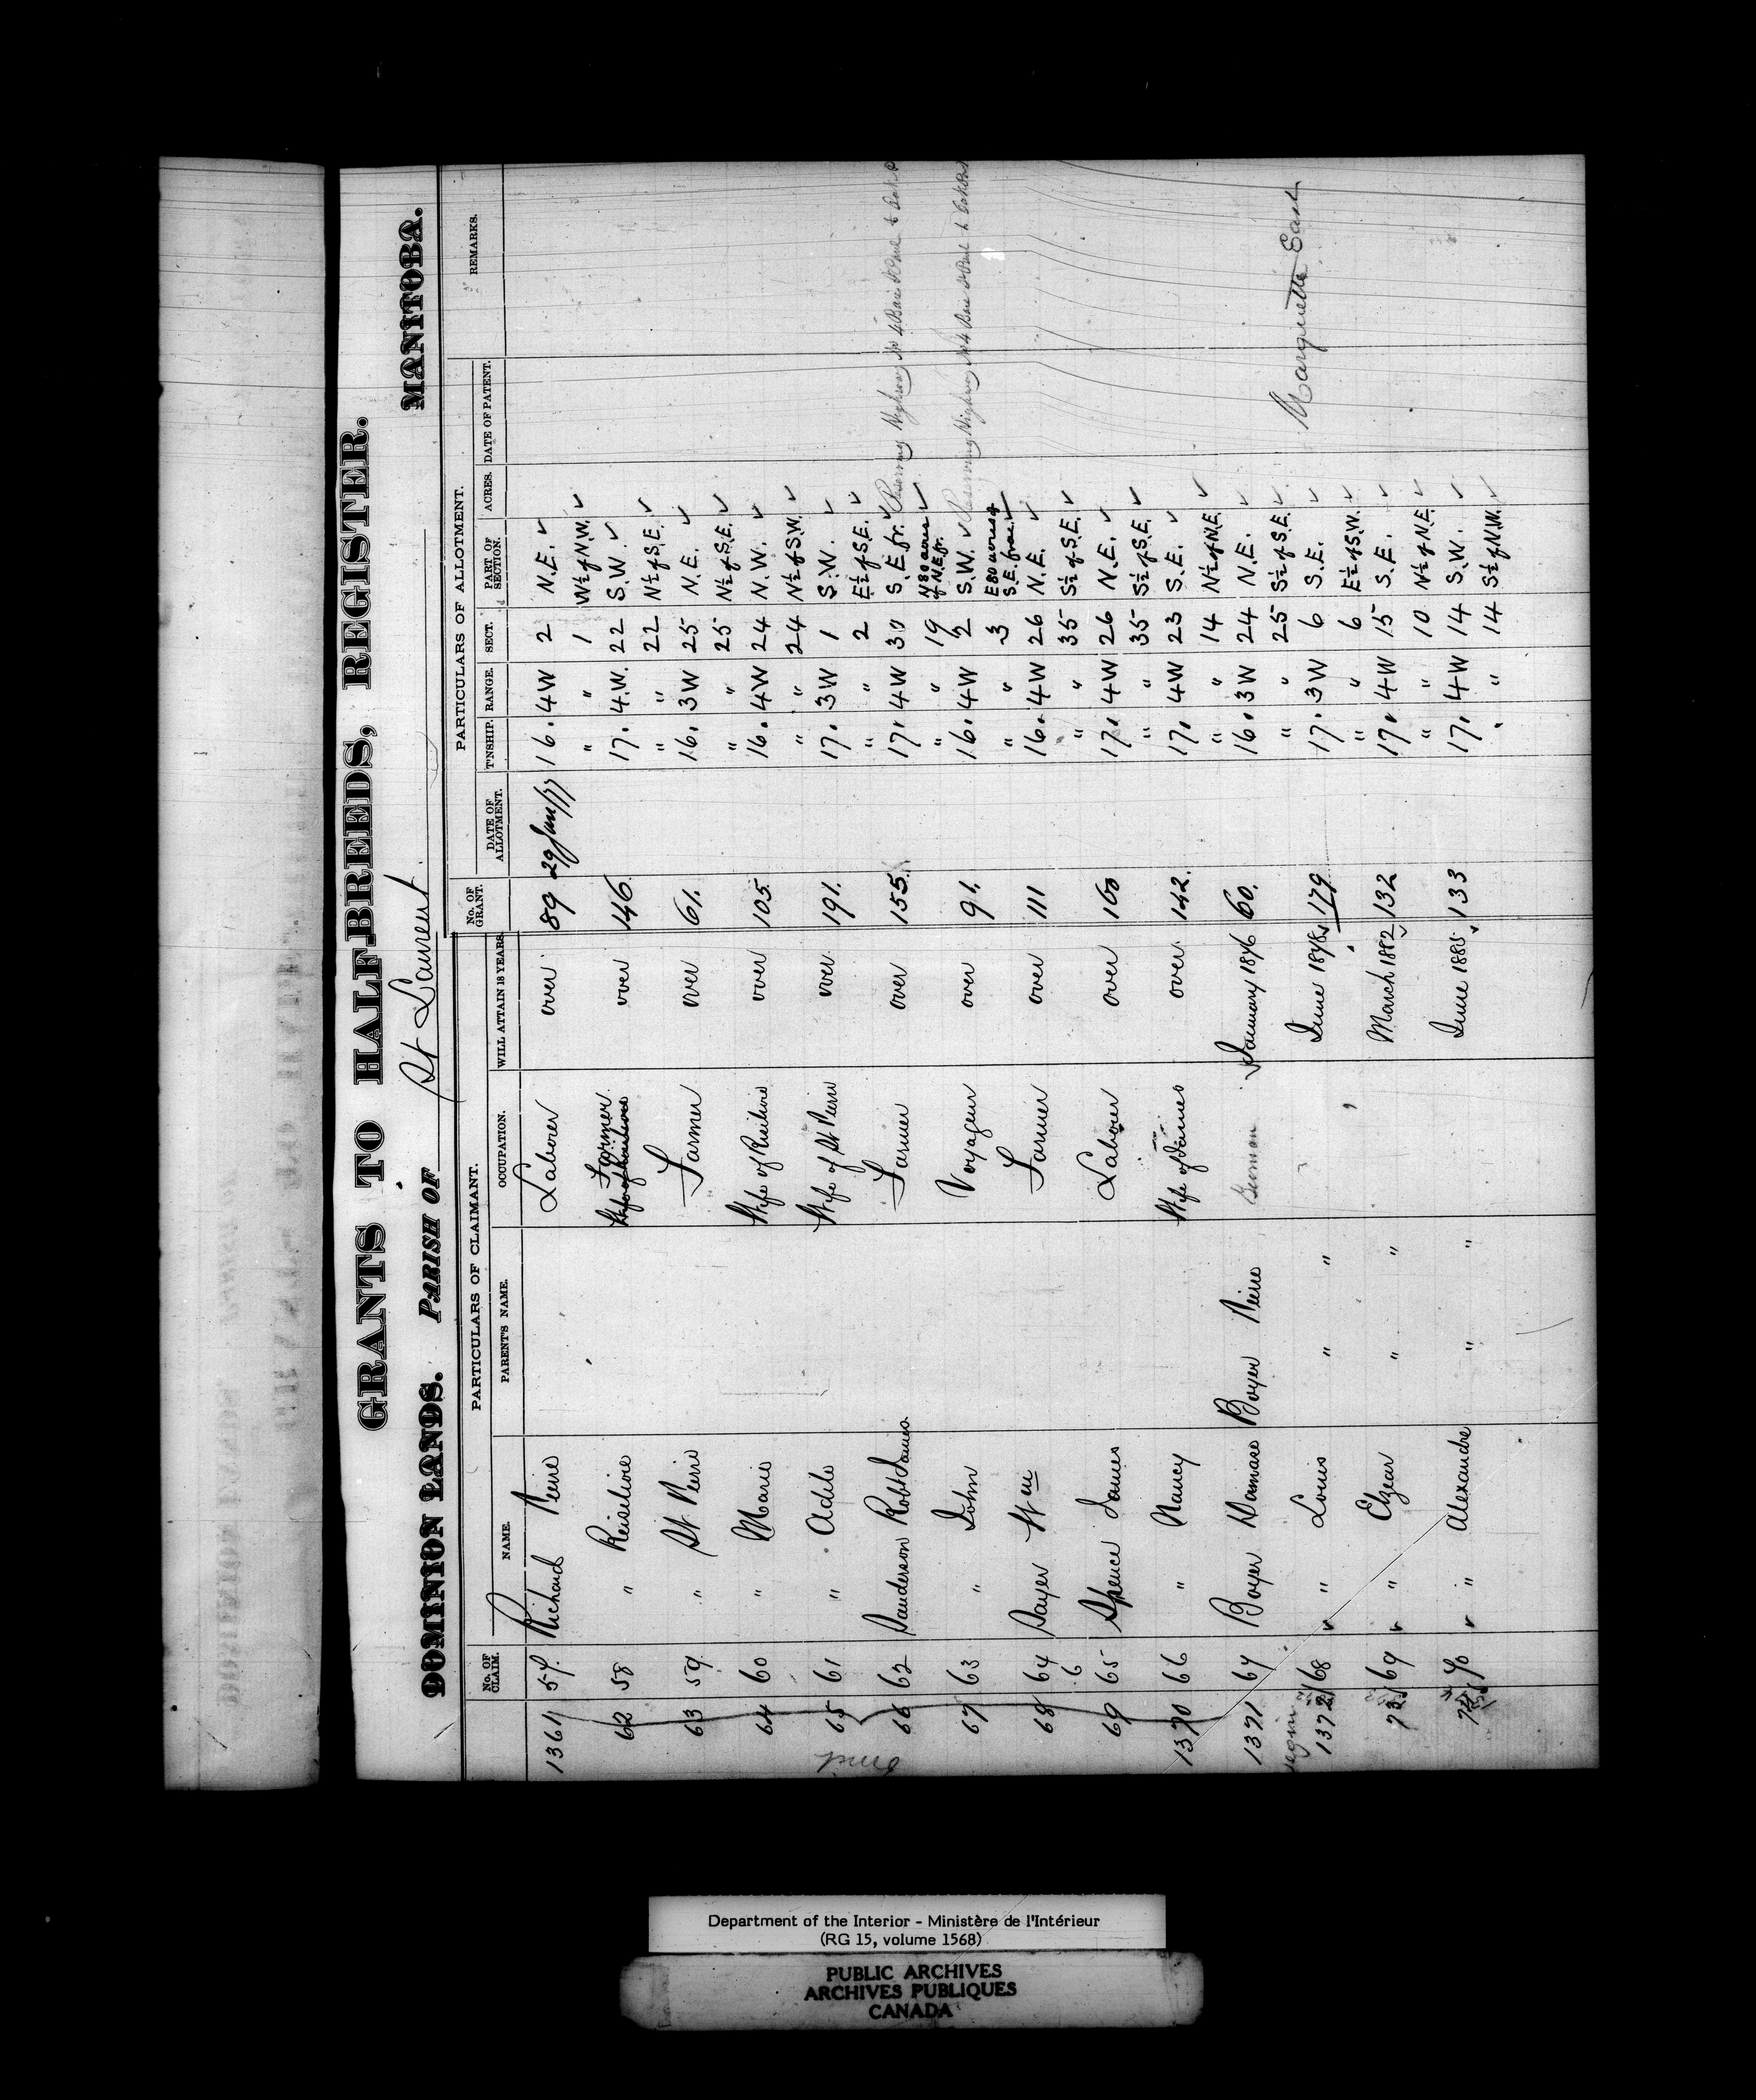 GRANTS TO HALF-BREEDS, REGISTER.
DOMINION LANDS. PARISH OF St Laurent MANITOBA.
PARTICULARS OF CLAIMANT. PARTICULARS OF ALLOTMENT.
No. OF CLAIM. NAME. PARENT'S NAME. OCCUPATION. WILL ATTAIN 18 YEARS. No. OF GRANT. DATE OF ALLOTMENT. T'NSHIP. RANGE. SECT. PART OF SECTION. ACRES. DATE OF PATENT. REMARKS.
1361 57 Richard Pierre Laborer over 89 29 Jany/77 16. 4W 2 N.E. ✓
" " 1 W½ of N.W. ✓
62 58 " Farmer over 146. 17. 4.W. 22 S.W. ✓
" " 22 N½ of S.E. ✓
63 59 " St Pierre Farmer over 61. 16. 3W 25 N.E. ✓
" " 25 N½ of S.E. ✓
64 60 " Marie Wife of over 105. 16. 4W 24 N.W. ✓
" " 24 N½ of S.W. ✓
65 61 " Adele Wife of St Pierre over 191. 17. 3W 1 S.W. ✓
" " 2 E½ of S.E. ✓
66 62 Sanderson Robt James Farmer over 155. 17. 4W 30 S.E. fr. ✓ Reserving Highway No 4 Baie St Paul to Oak P
" " 19 80 acres of N.E. fr. ✓
67 63 " John Voyageur over 91. 16. 4W 2 S.W. ✓ Reserving Highway No 4 Baie St Paul to Oak
" " 3 E 80 acres of S.E. frac. ✓
68 64 Sayer Wm Farmer over 111 16. 4W 26 N.E. ✓
6 " " 35 S½ of S.E. ✓
69 65 Spence James Laborer over 160 17. 4W 26 N.E. ✓
" " 35 S½ of S.E. ✓
1370 66 " Nancy Wife of James over 142. 17. 4W 23 S.E. ✓
" " 14 N½ of N.E. ✓
1371 67 Boyer Damase Boyer Pierre January 1876 60. 16. 3W 24 N.E. ✓
" " 25 S½ of S.E. ✓
1372 68 ✓ " Louis " " June 1878. 179 17. 3W 6 S.E. ✓ Marquette East
" " 6 E½ of S.W. ✓
73 69 ✓ " Elzear " " March 1882 132 17. 4W 15 S.E. ✓
" " 10 N½ of N.E. ✓
74 70 ✓ " Alexandre " " June 1885. 133 17. 4W 14 S.W. ✓
" " 14 S½ of N.W. ✓
Department of the Interior - Ministère de l'Intérieur
(RG 15, volume 1568)
PUBLIC ARCHIVES
ARCHIVES PUBLIQUES
CANADA